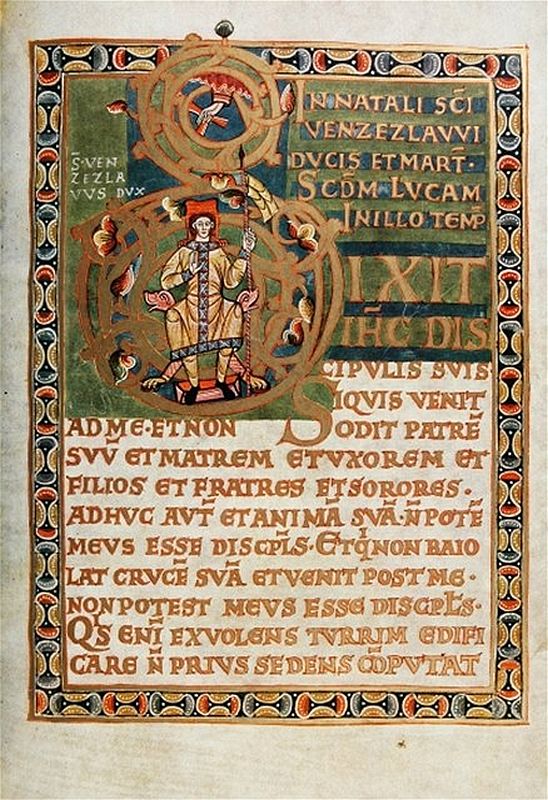 IN NATALI SC̄I
VENZEZLAVVI
DVCIS ET MART̄·
SCD̄M LVCAM
IN ILLO TEMP
S̄·VEN
ZEZLA
VVS DVX
DIXIT
IH̄C DIS
CIPVLIS SVIS
SIQVIS VENIT
AD ME·ET NON ODIT PATRĒ
SVV̄ ET MATREM ET VXOREM ET
FILIOS ET FRATRES ET SORORES·
ADHVC AVT̄ ET ANIMĀ SVĀ·N̄ POTĒ
MEVS ESSE DISCPL̄S·ET Q̄I NON BAIO
LAT CRVCĒ SVĀ ET VENIT POST ME·
NON POTEST MEVS ESSE DISCPL̄S·
QĪS ENĪ EX VOLENS TVRRIM EDIFI
CARE N̄ PRIVS SEDENS CŌPVTAT